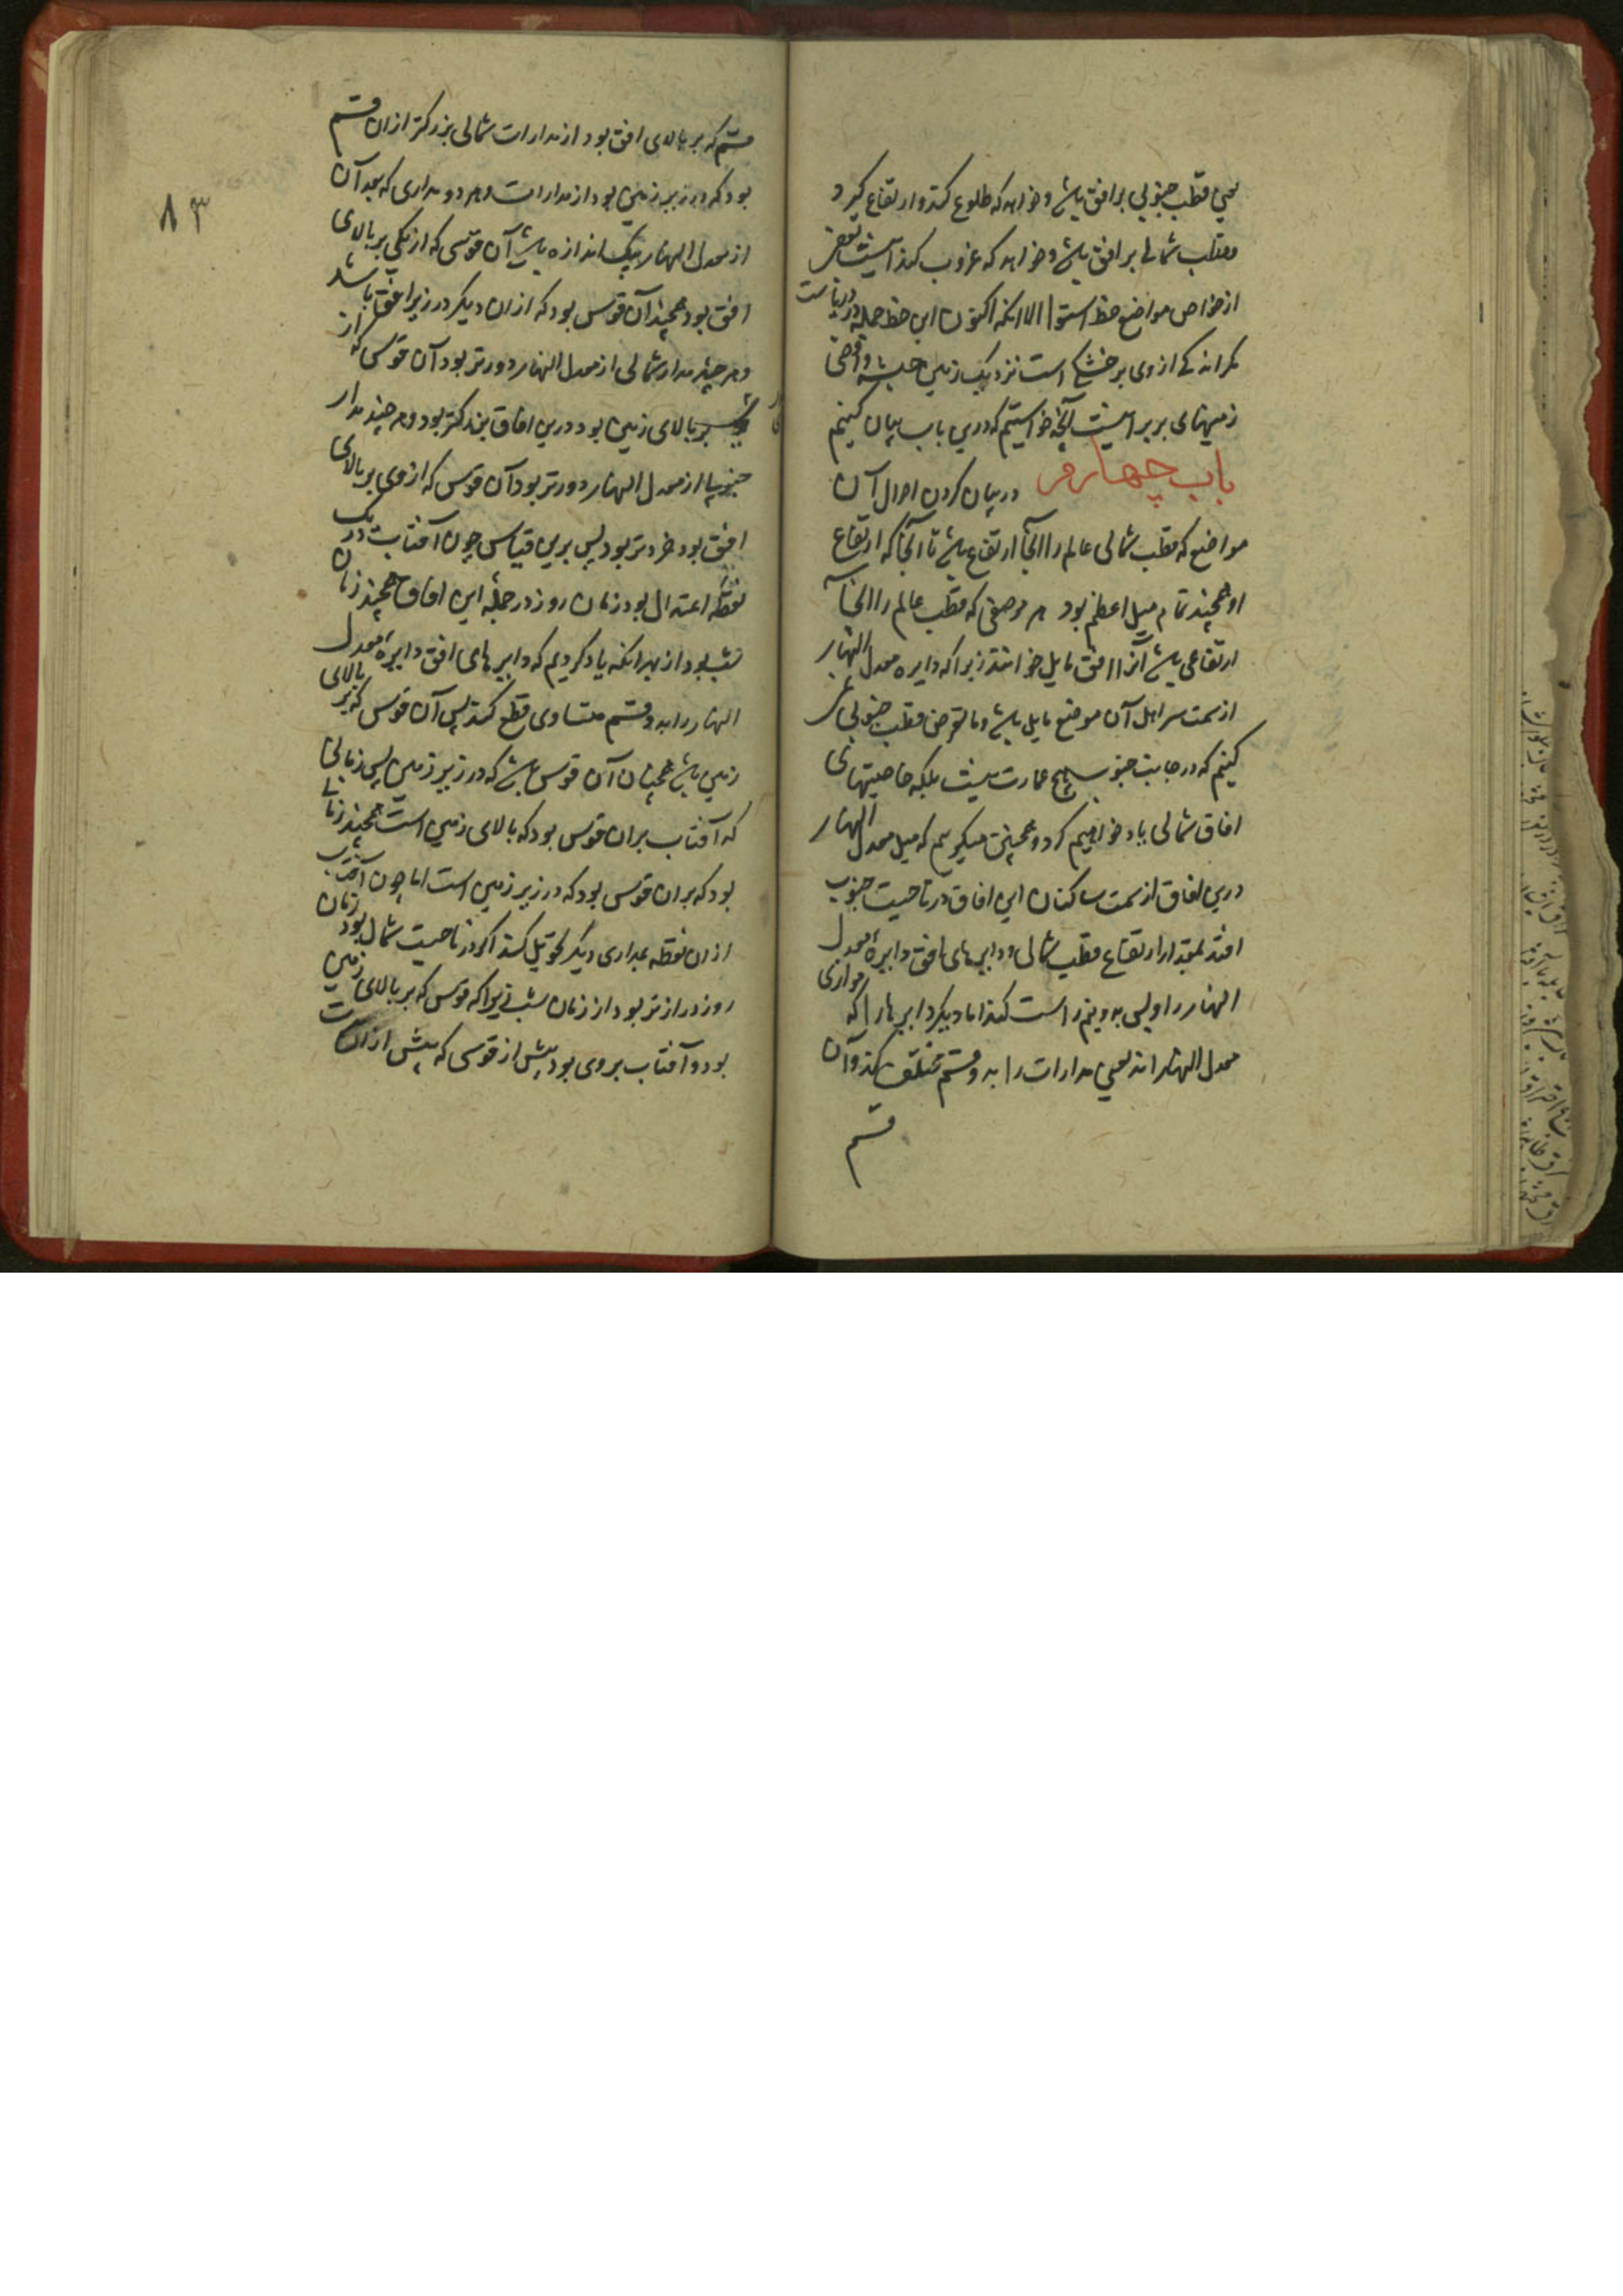 یعنی قطب جنوبی بر افق باشد و خواهد که طلوع کند و ارتفاع گیرد و
و قطب شمالی بر افق باشد و خواهد که غروب کند اینست بعضی
از خواص مواضع خط استوا الا آنکه اکنون این خط جمله در دریاست
مگر اندکی از وی بر خشکی است نزدیک زمین حبشه و اقصی
زمینهای بربر اینست آنچه خواستیم که درین باب بیان کنیم
باب چهارم در بیان کردن احوال آن
مواضع که قطب شمالی عالم را آنجا ارتفاع باشد تا آنجا که ارتفاع
او همچند تمام میل اعظم بود هر موضعی که قطب عالم را آنجا
ارتفاعی باشد آنرا افق مایل خوانند زیرا که دایره معدل النهار
از سمت سر اهل آن موضع مایل باشد و ما تعرض قطب جنوبی
کنیم که در جانب جنوب هیچ عمارت نیست بلکه خاصیتهای
افاق شمالی یاد خواهیم کرد و همچنین میگویم که میل معدل النهار
درین افاق از سمت ساکنان این افاق در ناحیت جنوب
افتد بمقدار ارتفاع قطب شمالی و دایرهای افق دایره معدل
النهار را اولین به دو نیم راست کند اما دیگر دایرها را که موازی
معدل النهار اند یعنی مدارات را به دو قسم مختلف کند و آن
قسم
۸۳
قسم که بر بالای افق بود از مدارات شمالی بزرگتر ازان قسم
بود که در زیر زمین بود از مدارات و هر دو مداری که بعد آن
از معدل النهار بیک اندازه باشد آن قوسی که از یکی بر بالای
افق بود همچند آن قوس بود که ازان دیگر در زیر افق باشد
و هر چند مدار شمالی از معدل النهار دورتر بود آن قوس که از
بر بالای زمین بود درین افاق بزرگتر بود و هر چند مدار
جنوبی از معدل النهار دورتر بود آن قوس که از وی بر بالای
افق بود خردتر بود پس برین قیاس چون آفتاب در یک
نقطه اعتدال بود زمان روز در جمله این افاق همچند زمان
شب بود از بهر آنکه یاد کردیم که دایرهای افق دایره معدل
النهار را به دو قسم متساوی قطع کند پس آن قوس که بر بالای
زمین باشد همچنان آن قوس باشد که در زیر زمین پس زمانی
که آفتاب بران قوس بود که بالای زمین است همچند زمانی
بود که بران قوس بود که در زیر زمین است اما چون آفتاب
ازان نقطه بمداری دیگر تحویل کند اگر در ناحیت شمال بود زمان
روز درازتر بود از زمان شب زیرا که قوس که بر بالای زمین
بود و آفتاب بروی بود بیش از قوسی که پیش ازانست